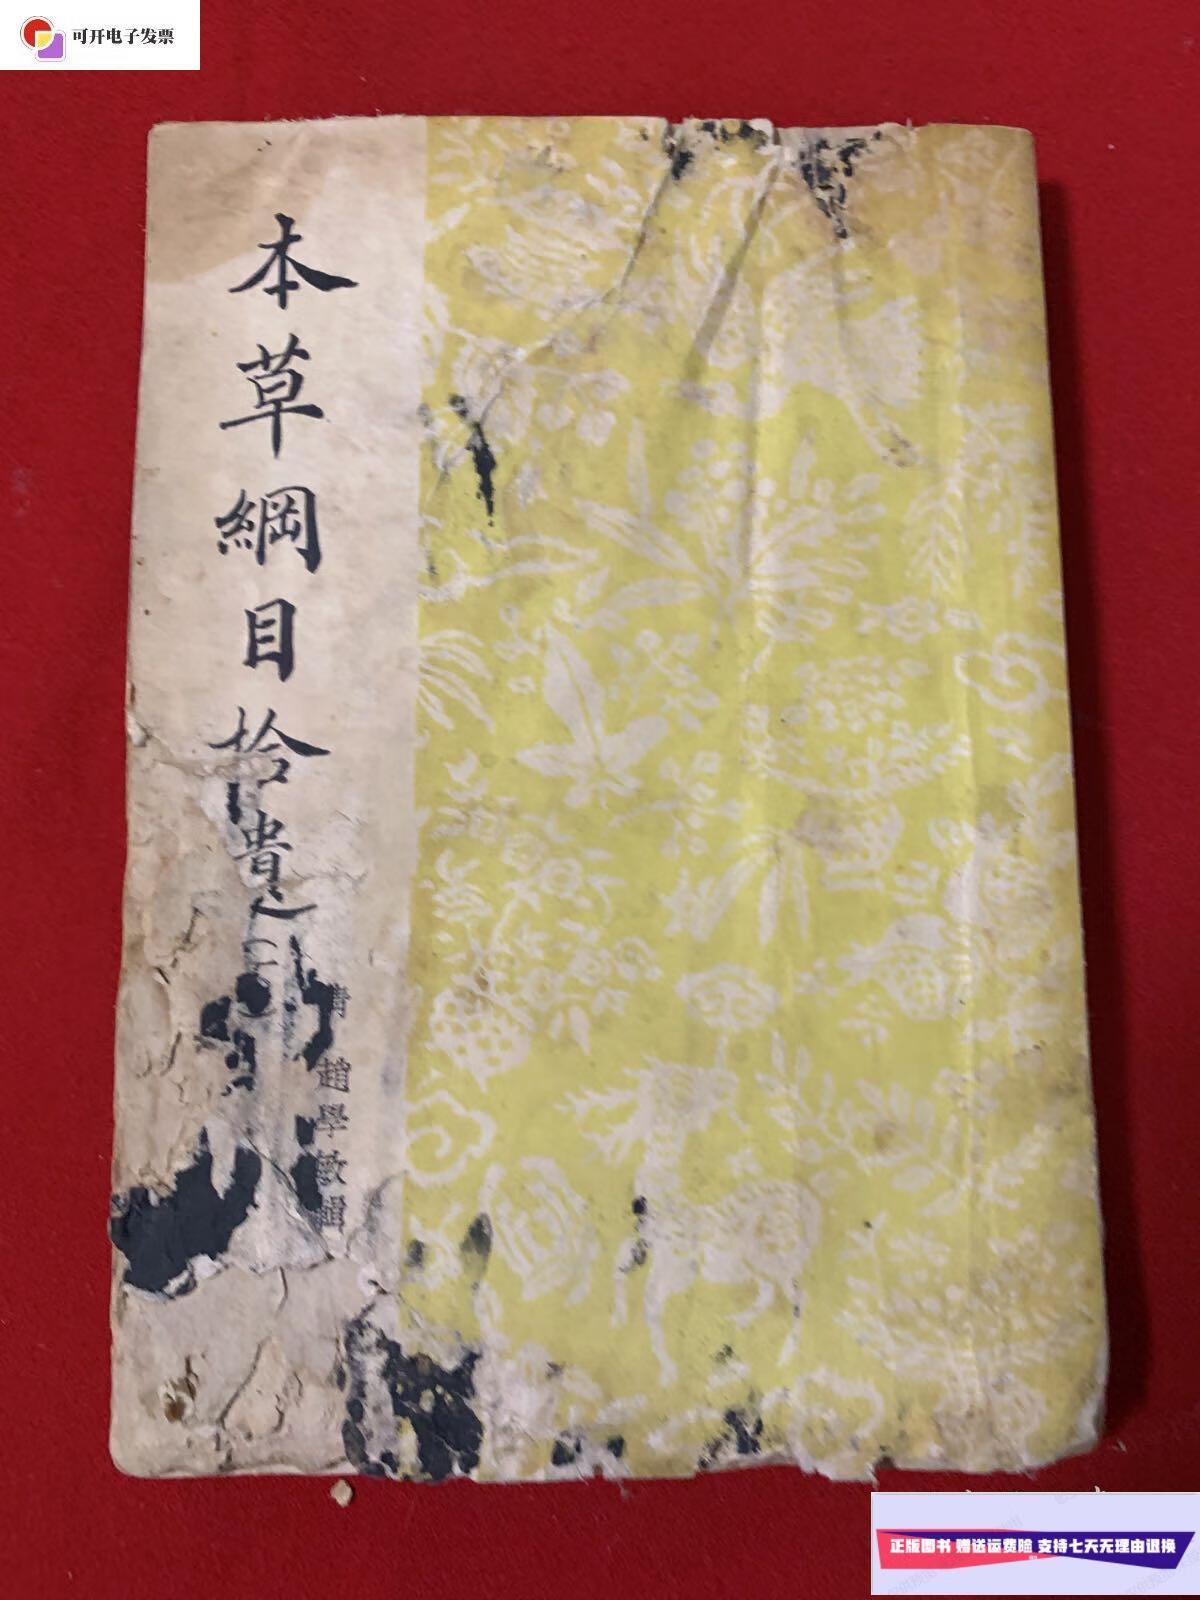 可开电子发票
本草綱目拾遺
清 趙學敏輯
正版图书 赠送运费险 支持七天无理由退换